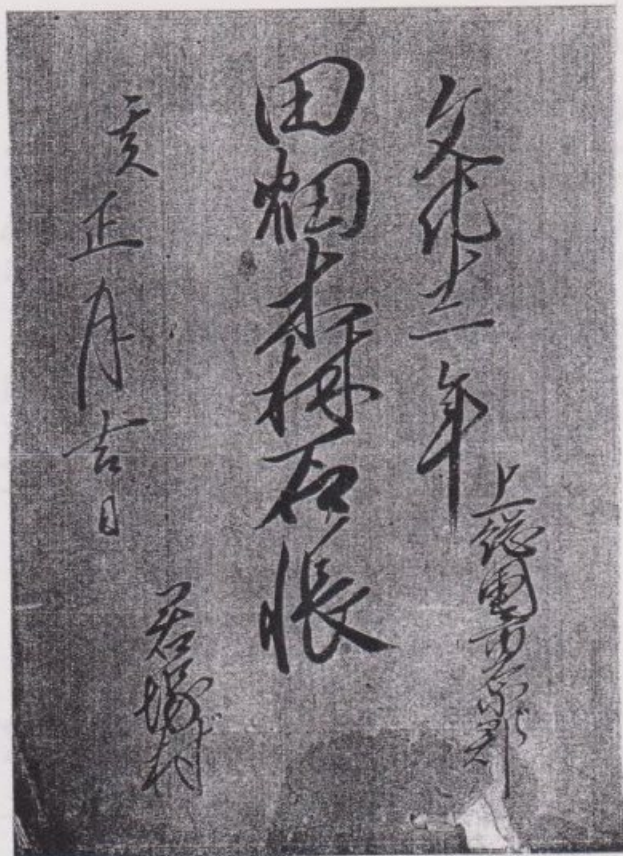 文化十二年
上総國市原郡
田畑本株石帳
亥正月吉日
君塚村